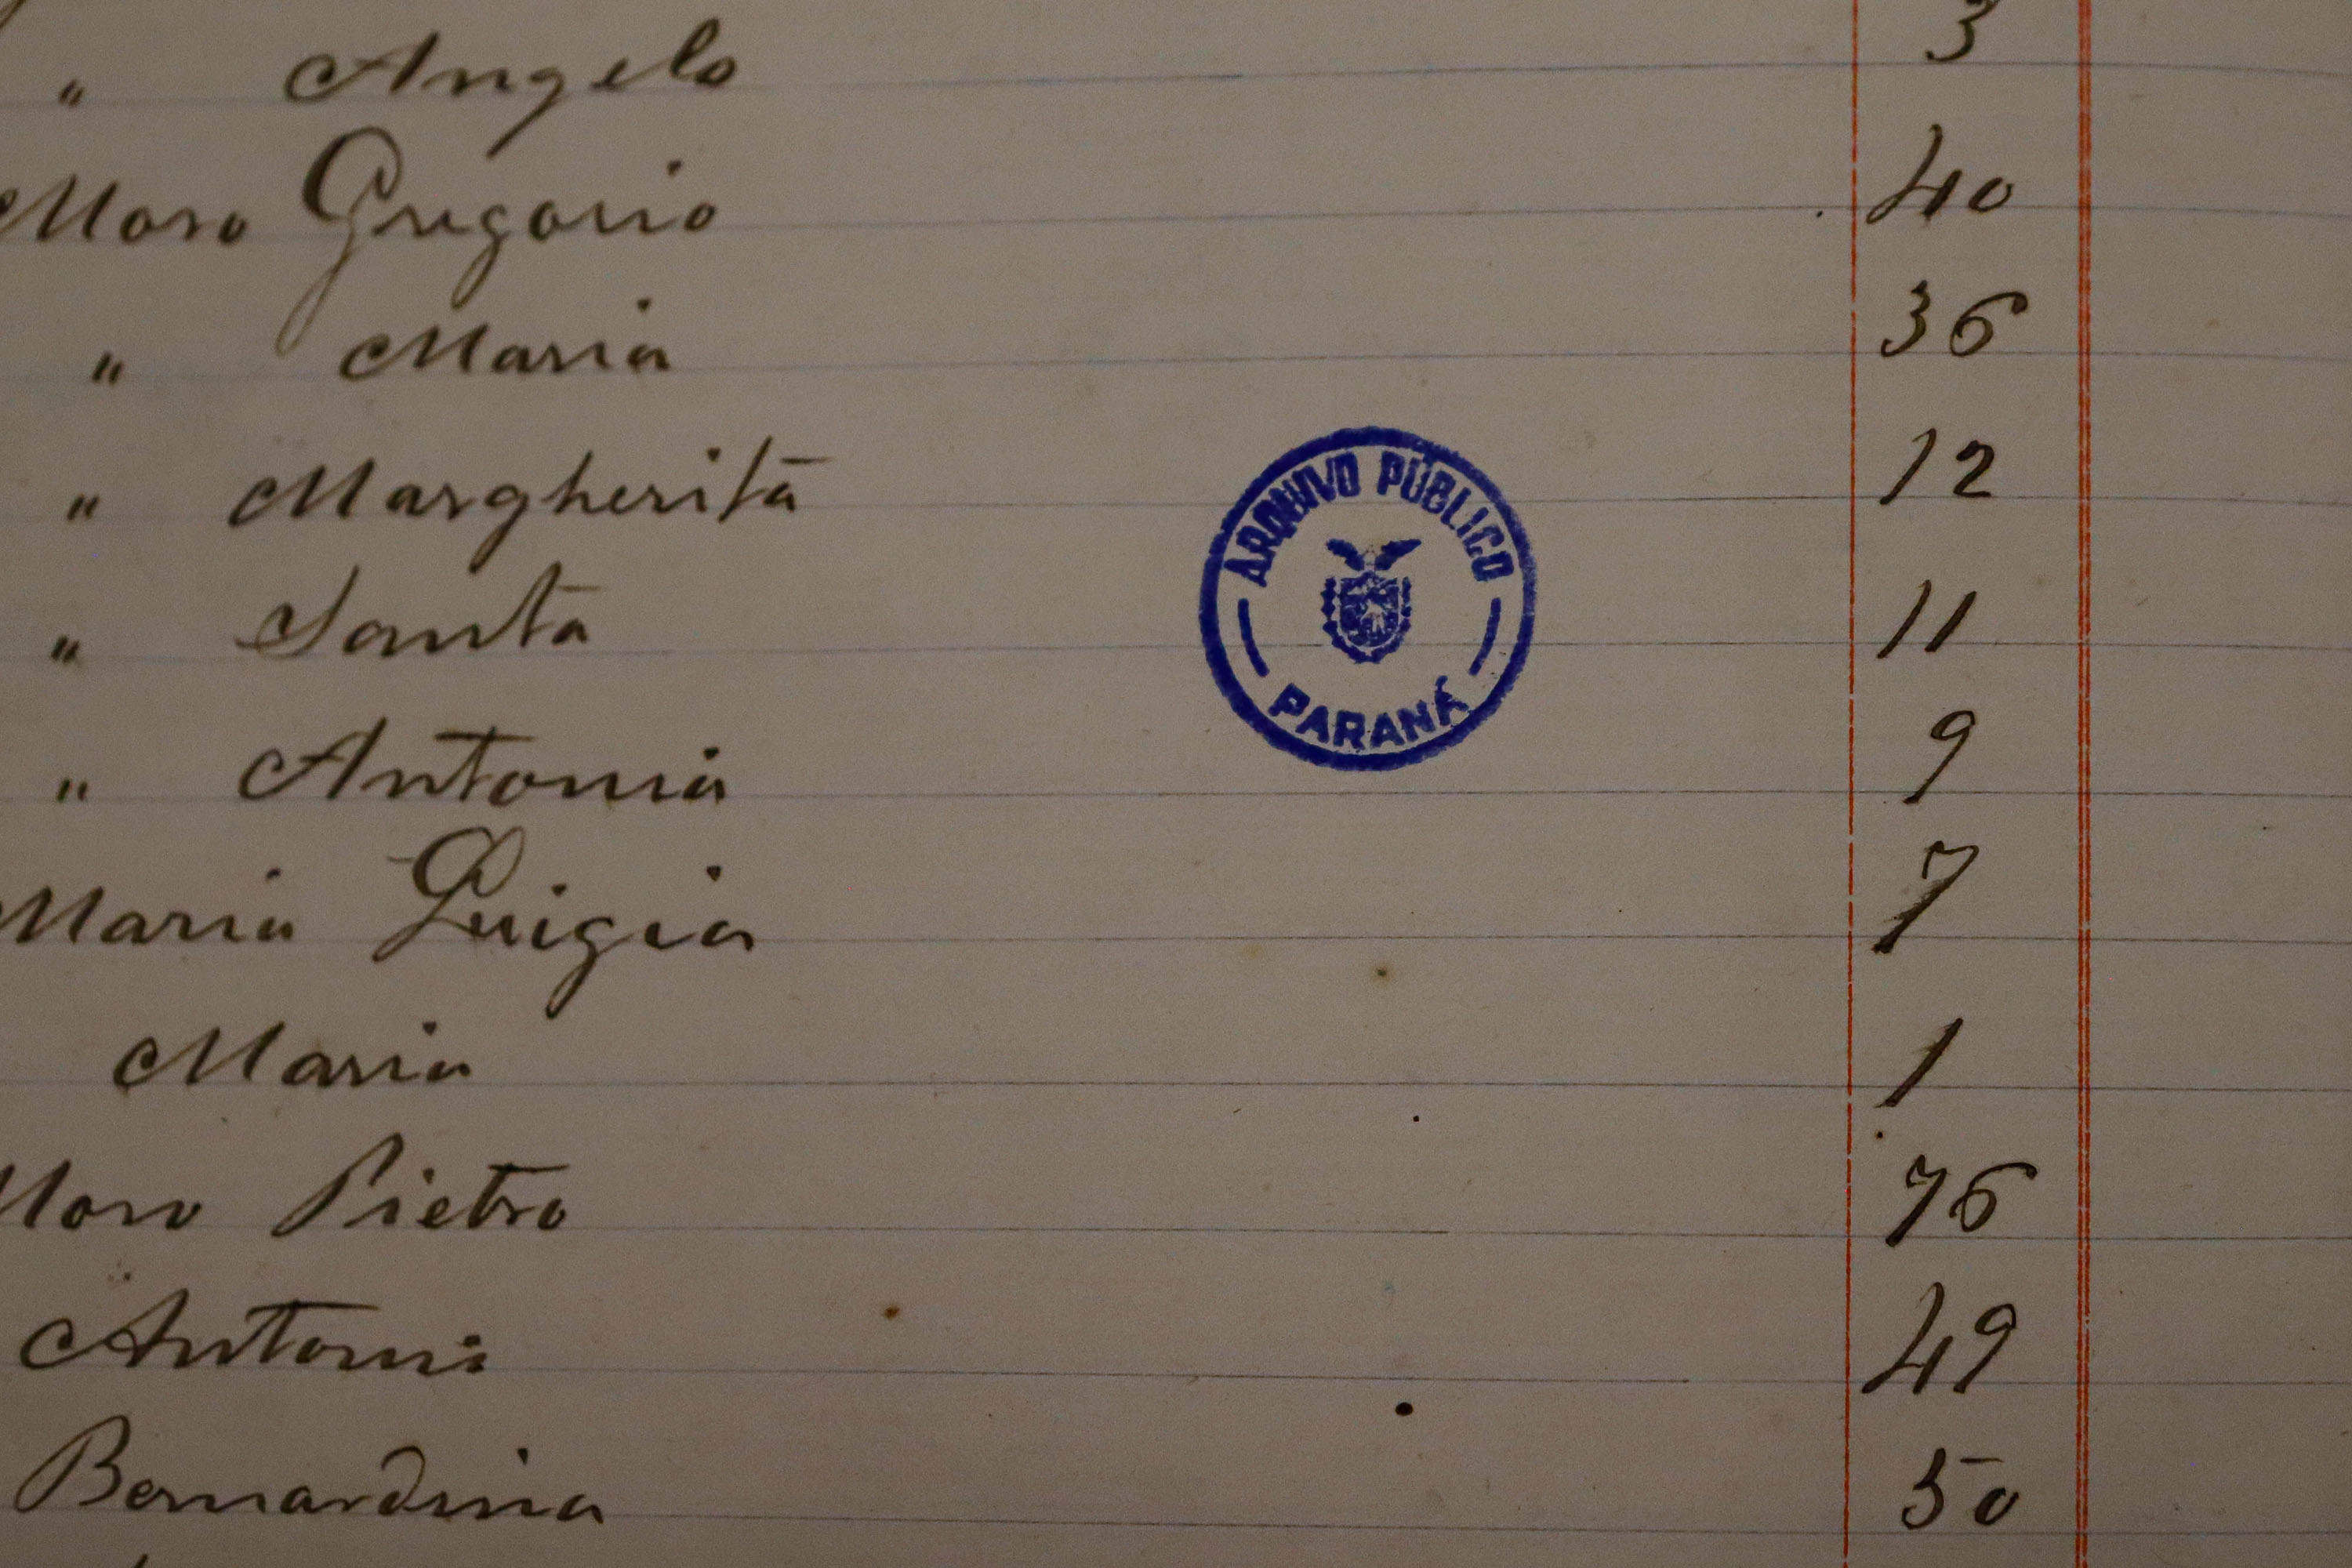 " Angelo 3
Moro Gregorio 40
" Maria 36
" Margherita 12
" Santa 11
" Antonia 9
Maria Luigia 7
Maria 1
Moro Pietro 76
Antonia 49
Bernardina 50
ARQUIVO PÚBLICO
PARANÁ